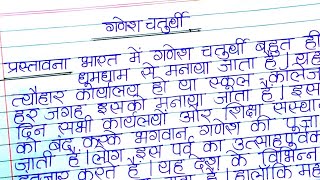 गणेश चतुर्थी
प्रस्तावना भारत में गणेश चतुर्थी बहुत ही
धूमधाम से मनाया जाता है। यह
त्यौहार कार्यालय हो या स्कूल-कॉलेज
हर जगह इसको मनाया जाता है। इस
दिन सभी कार्यालयों और शिक्षा संस्थान
को बंद करके भगवान गणेश की पूजा
जाती है। लोग इस पर्व का उत्साहपूर्वक
इंतजार करते हैं। यह देश के विभिन्न
जाता है। हालांकि